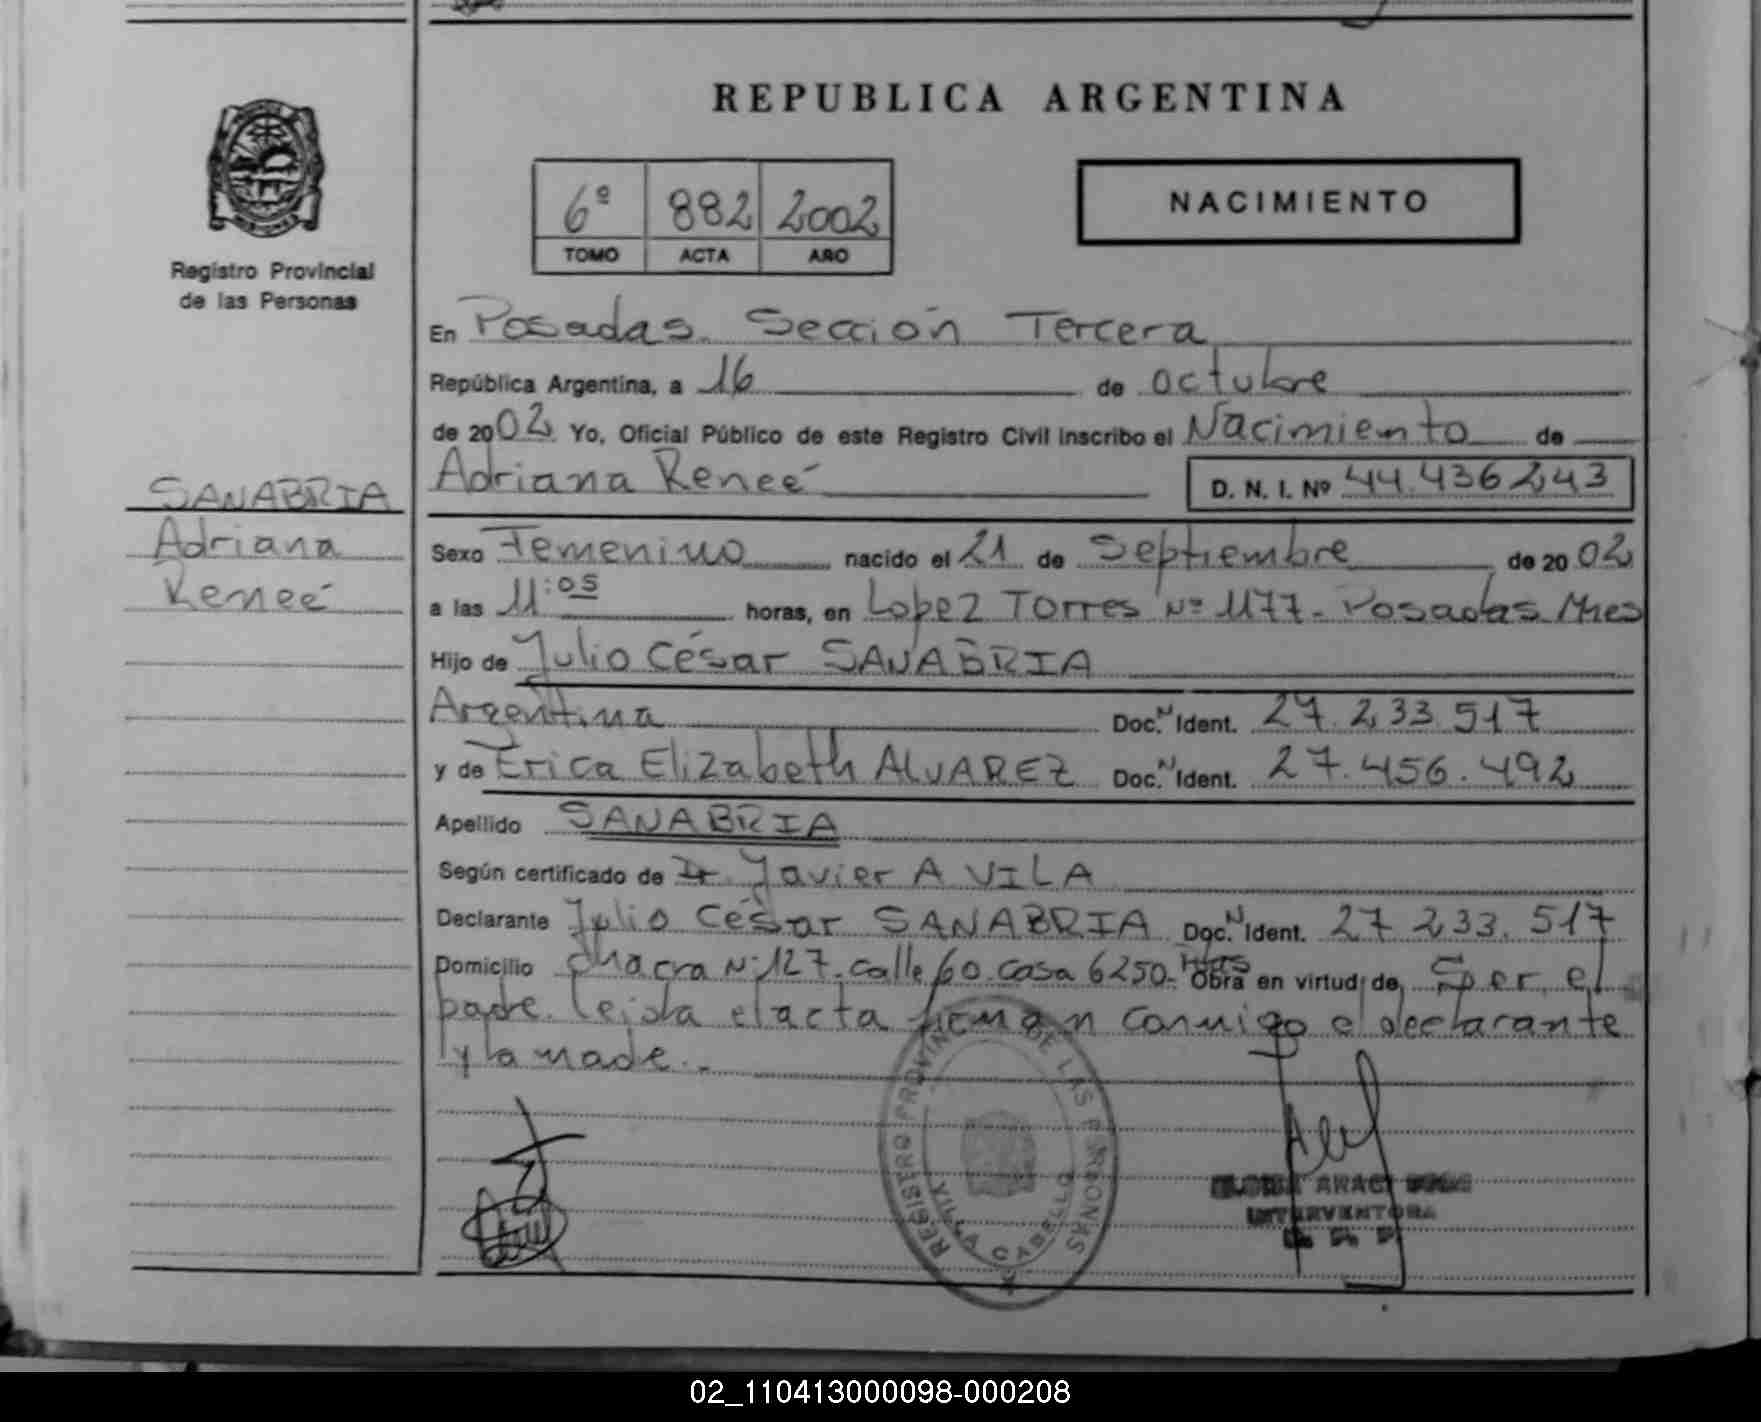 REPUBLICA ARGENTINA
6º 882 2002
TOMO ACTA AÑO
NACIMIENTO
Registro Provincial
de las Personas
En Posadas. Sección Tercera
República Argentina, a 16 de octubre
de 2002. Yo, Oficial Público de este Registro Civil inscribo el Nacimiento de
Adriana Reneé D. N. I. Nº 44.436.243
SANABRIA
Adriana
Reneé
Sexo Femenino nacido el 21 de Septiembre de 2002
a las 11:05 horas, en Lopez Torres Nº 1177- Posadas Mnes
Hijo de Julio César SANABRIA
Argentina Doc.N Ident. 27.233.517
y de Erica Elizabeth ALVAREZ Doc.N Ident. 27.456.492
Apellido SANABRIA
Según certificado de Dr. Javier AVILA
Declarante Julio César SANABRIA Doc.N Ident. 27 233.517
Domicilio chacra Nº127. calle 60. casa 6250- Obra en virtud de Ser el
padre. leida el acta firman conmigo el declarante
y la madre.-
REGISTRO PROVINCIAL DE LAS PERSONAS
VILLA CABELLO
INTERVENTORA
02_110413000098-000208